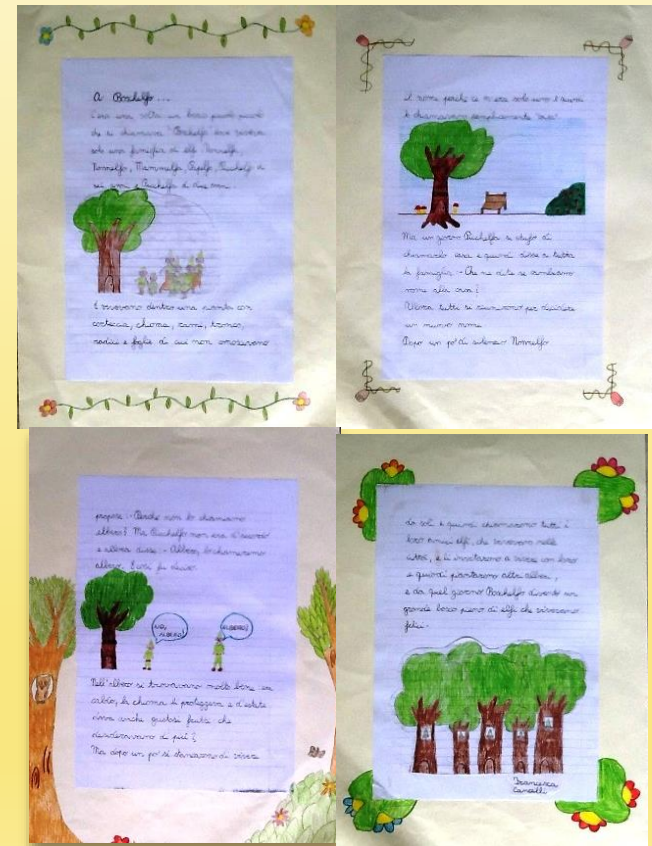 A Boschelfo...
C'era una volta un bosco piccolo piccolo
che si chiamava "Boschelfo" dove viveva
solo una famiglia di elfi: Nonnelfa,
Nonnelfo, Mammelfa, Papelfo, Picchelfo di
sei anni e Picchelfa di due anni.
E vivevano dentro una
corteccia, chioma, rami, tronco,
radici e foglie di cui non conoscevano
il nome perché ce n'era solo uno e quindi
lo chiamavano semplicemente "casa".
Ma un giorno Picchelfa si stufò di
chiamarlo casa e quindi disse a tutta
la famiglia: - Che ne dite se cambiamo
nome alla casa?
Allora tutti si riunirono per decidere
un nuovo nome.
Dopo un po' di silenzio Nonnelfo
propose: - Perché non lo chiamiamo
elbero? Ma Picchelfo non era d'accordo
e allora disse: - Albero, lo chiameremo
albero. E così fu deciso.
NO, ALBERO!
ELBERO?
Nell'albero si trovavano molto bene: era
caldo, la chioma li proteggeva e d'estate
dava anche gustosi frutti che
desideravano di più?
Ma dopo un po' si stancarono di vivere
da soli e quindi chiamarono tutti i
loro amici elfi, che vivevano nelle
città, e li invitarono a vivere con loro
e quindi piantarono altri alberi,
e da quel giorno Boschelfo diventò un
grande bosco pieno di elfi che vivevano
felici.
Francesca